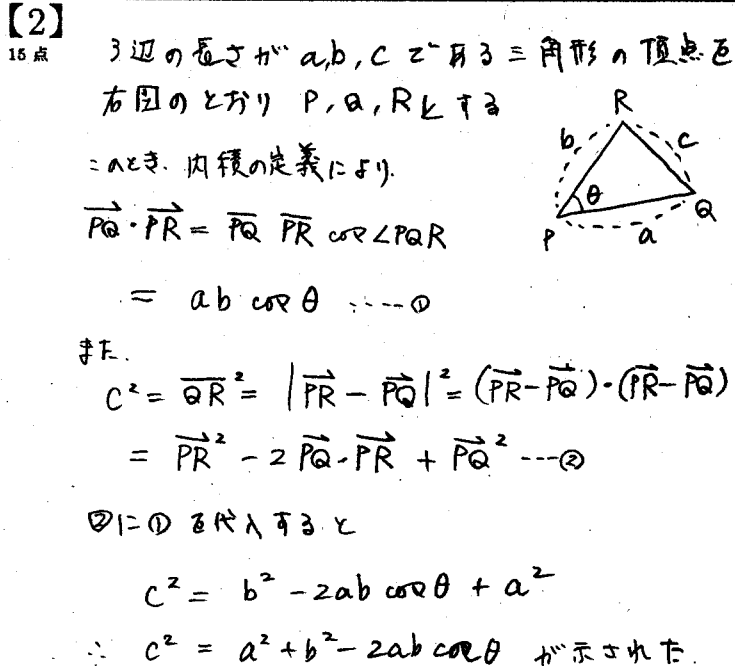 【2】
15点
3辺の長さが a,b,c である三角形の頂点を
右図のとおり P,Q,Rとする
R
b
c
θ
P
a
Q
このとき、内積の定義により、
$\overrightarrow{PQ}\cdot\overrightarrow{PR} = \overline{PQ}\ \overline{PR} \cos\angle PQR$
$= ab\cos\theta$ ……①
また、
$c^2 = \overline{QR}^2 = |\overrightarrow{PR} - \overrightarrow{PQ}|^2 = (\overrightarrow{PR} - \overrightarrow{PQ})\cdot(\overrightarrow{PR} - \overrightarrow{PQ})$
$= \overrightarrow{PR}^2 - 2\overrightarrow{PQ}\cdot\overrightarrow{PR} + \overrightarrow{PQ}^2$ ……②
②に①を代入すると
$c^2 = b^2 - 2ab\cos\theta + a^2$
∴ $c^2 = a^2 + b^2 - 2ab\cos\theta$ が示された.